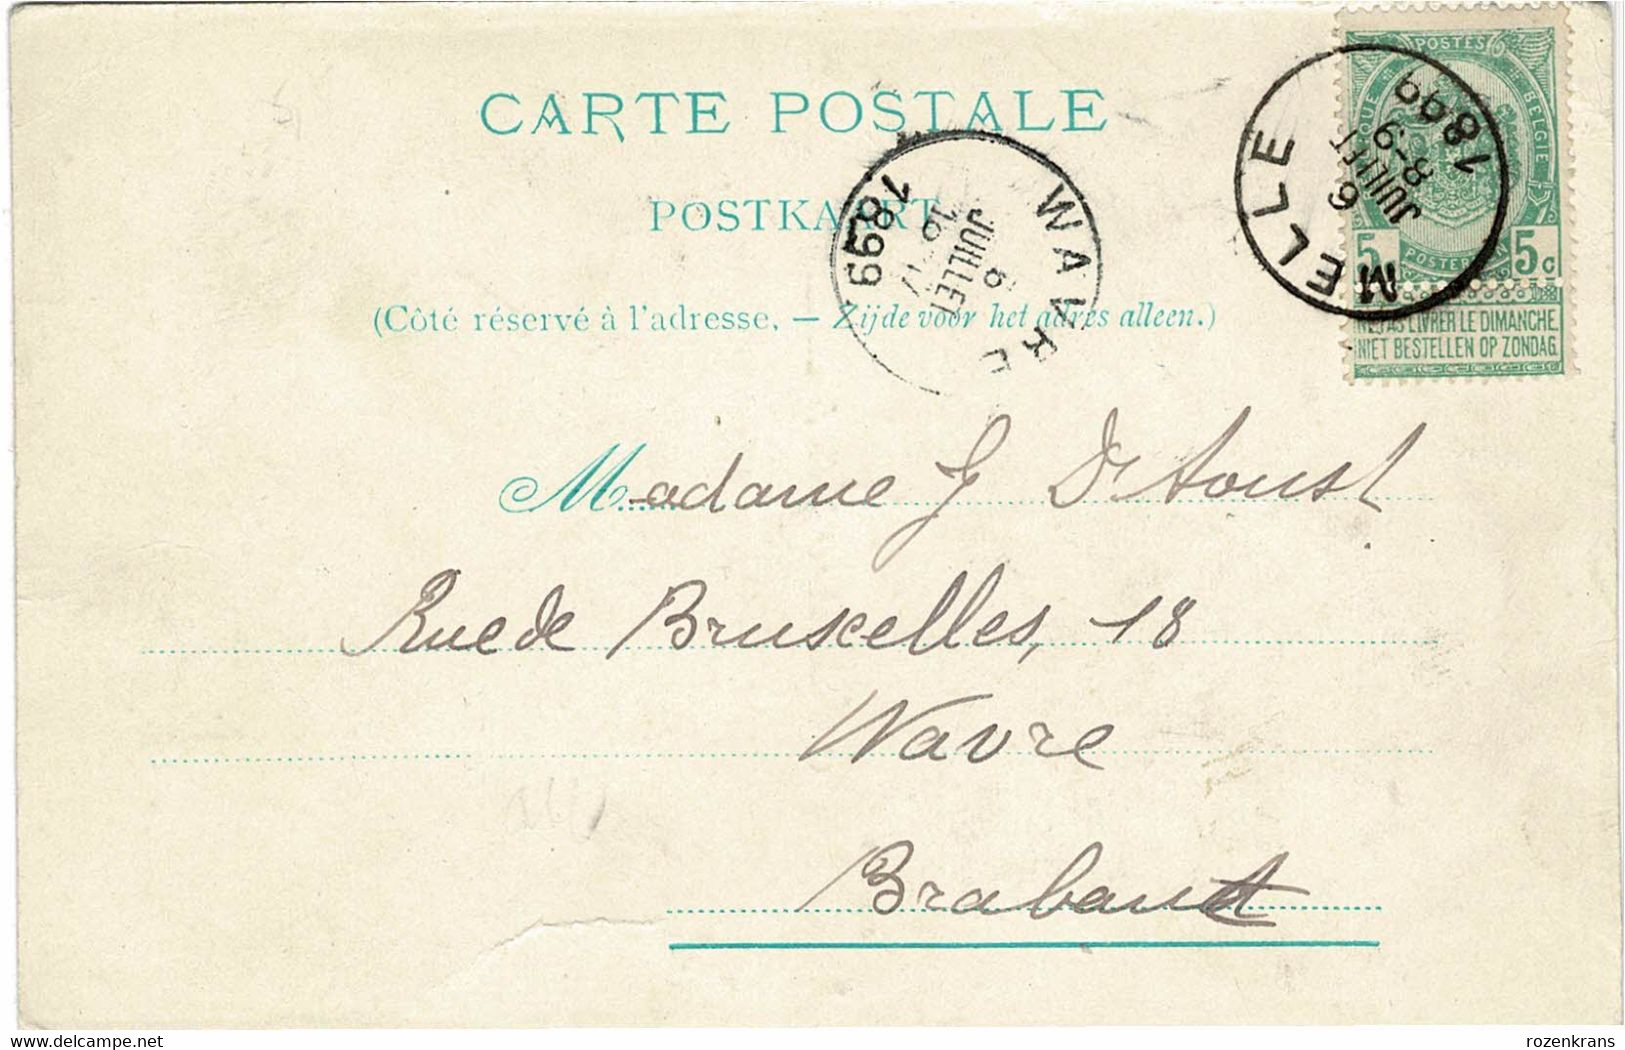 CARTE POSTALE
POSTKAART
(Côté réservé à l'adresse. — Zijde voor het adres alleen.)
POSTES
BELGIE
5 5c
POSTER
NE PAS LIVRER LE DIMANCHE
NIET BESTELLEN OP ZONDAG
MELLE
6
JUILLET
8-9
1899
WAVRE
6
JUILLET
1899
Madame J D'Aoust
Rue de Bruxelles, 18
Wavre
Brabant
delcampe.net
rozenkrans